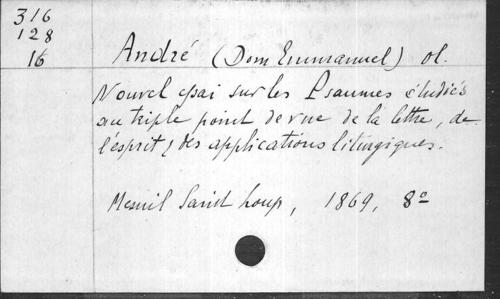 316
128
16
André (Dom Emmanuel) ol.
Nouvel essai sur les Psaumes étudiés
au triple point de vue de la lettre, de
l'esprit & des applications liturgiques.
Mesnil Saint Loup, 1869, 8º